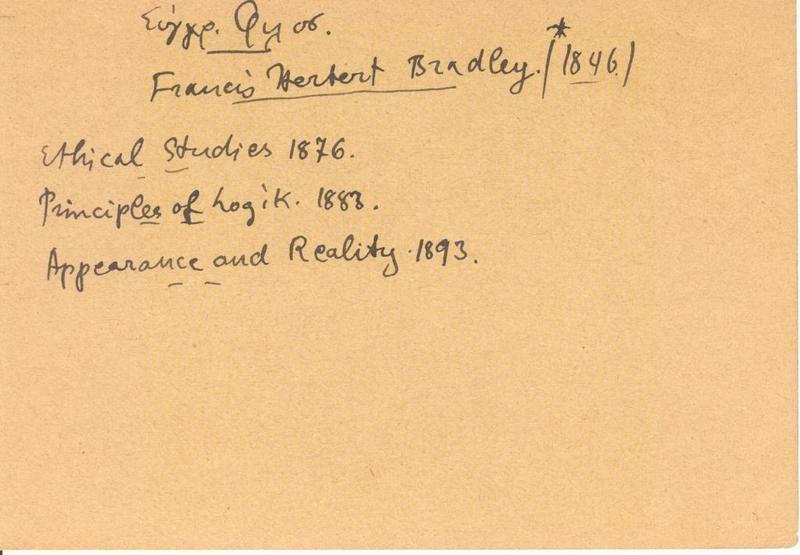 Σύγχρ. Φιλοσ.
Francis Herbert Bradley. (*1846.)
Ethical Studies 1876.
Principles of Logik. 1883.
Appearance and Reality. 1893.